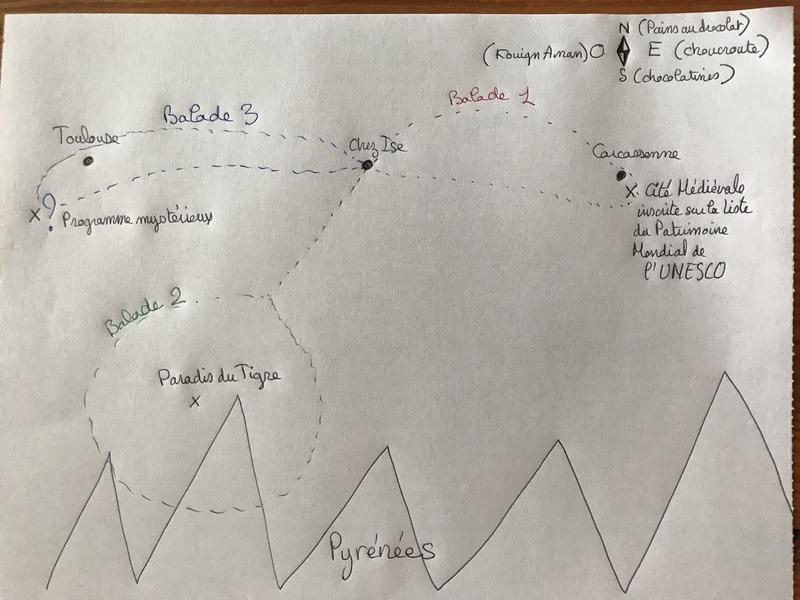 N (Pains au chocolat)
(Kouign Aman) O E (choucroute)
S (chocolatines)
Balade 3
Balade 1
Toulouse
Chez Ise
Carcassonne
X ? Programme mystérieux
X. Cité Médiévale
inscrite sur la Liste
du Patrimoine
Mondial de
l'UNESCO
Balade 2
Paradis du Tigre
X
Pyrénées